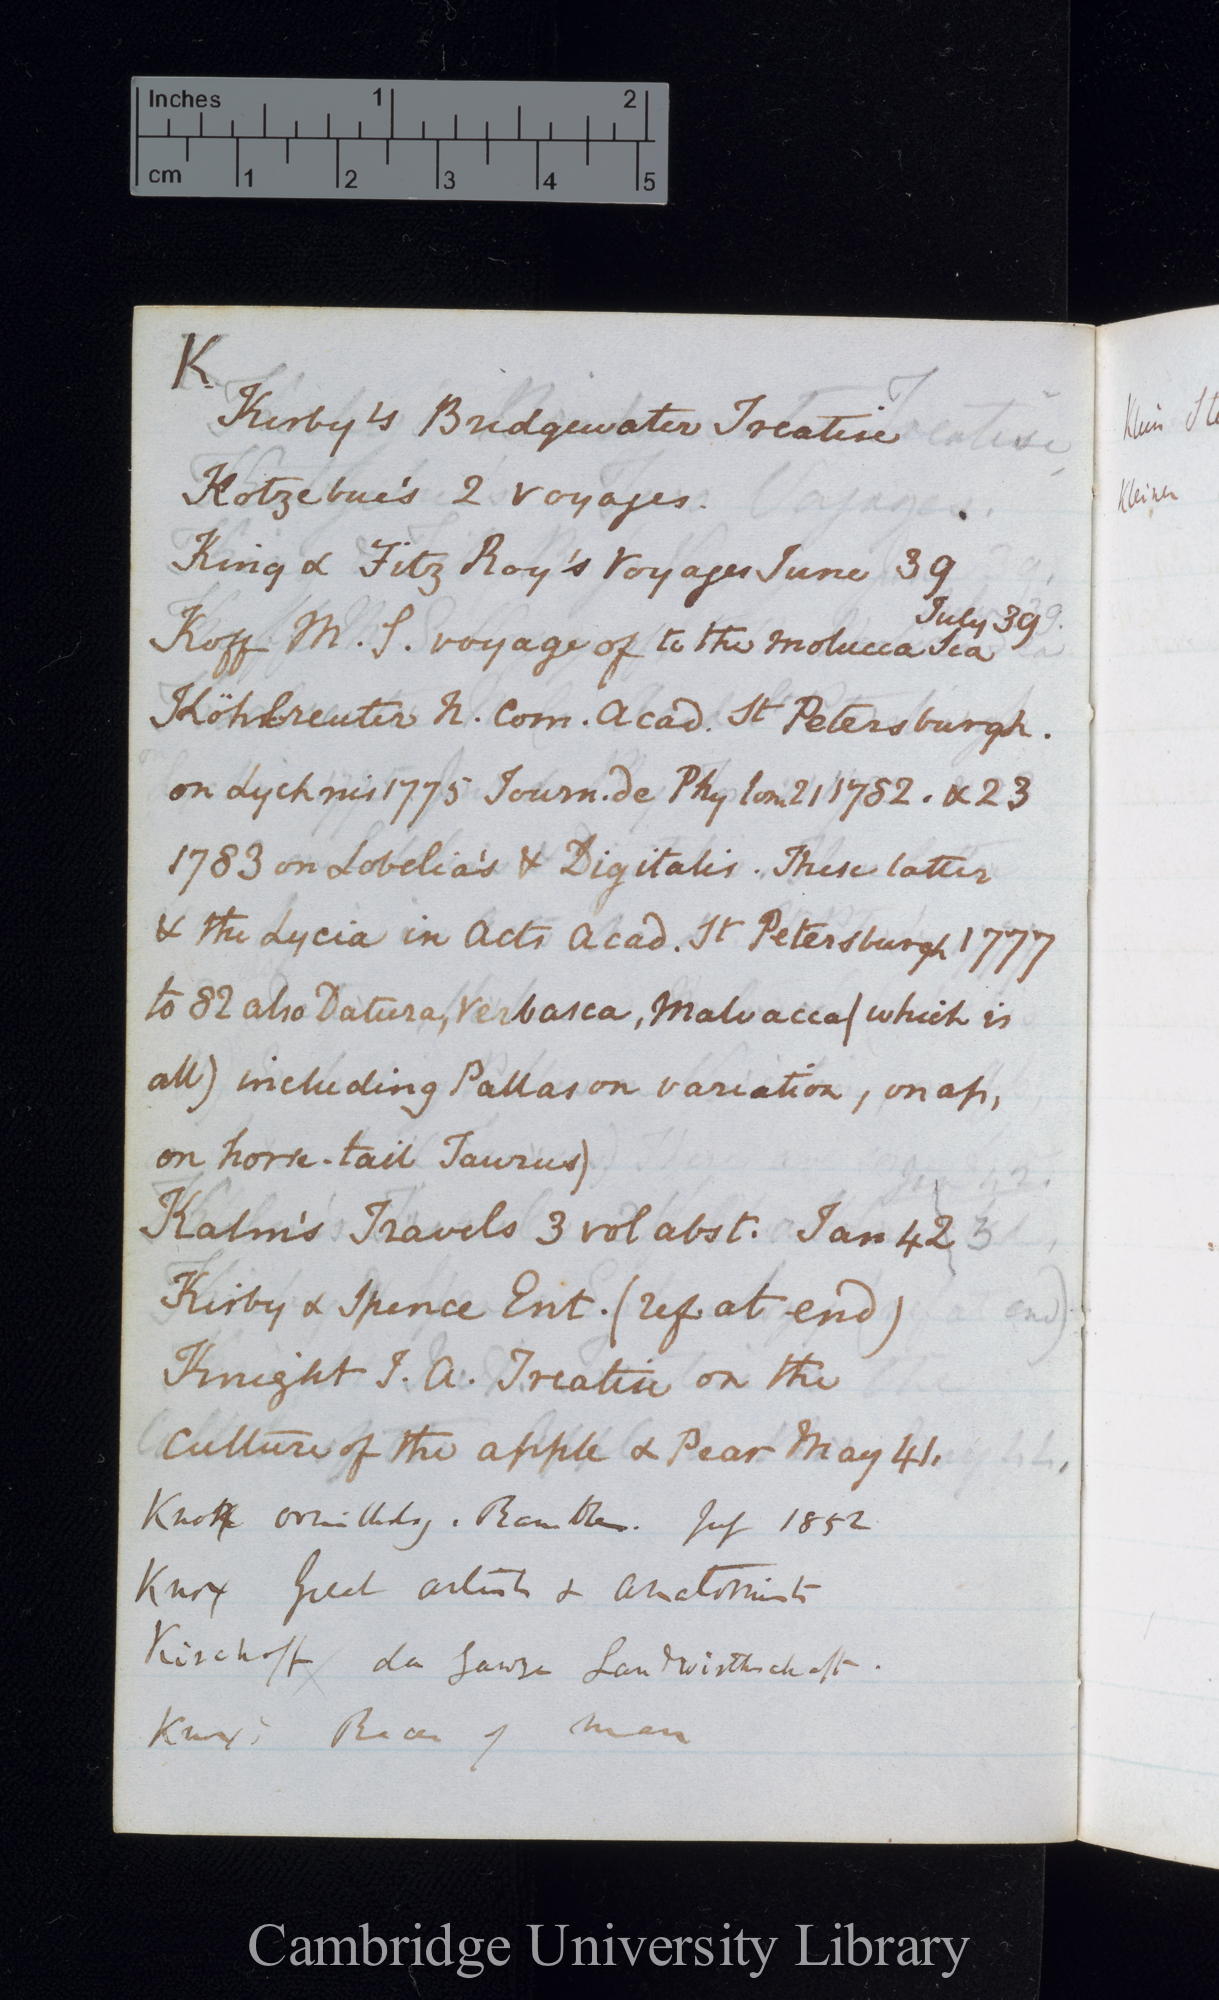 Inches 1 2
cm 1 2 3 4 5
K
Kirby's Bridgewater Treatise
Kotzebue's 2 voyages.
King & Fitz Roy's Voyages June 39
July 39
Koff M. S. voyage of to the Molucca Sea
Köhlreuter N. Com. Acad. St Petersburgh.
on Lychnis 1775 Journ. de Phy tom 21 1782. & 23
1783 on Lobelia's & Digitalis. These latter
& the Lycia in Acts Acad. St Petersburgh 1777
to 82 also Datura, Verbasca, Malvacea (which is
all) including Pallas on variation, on ap,
on horse-tail Taurus)
Kalm's Travels 3 vol abst. Jan 42 3
Kirby & Spence Ent. (ref at end)
Knight J. A. Treatise on the
Culture of the apple & Pear May 41.
Knox Ornitholog. Rambles. 1852
Knox Great artists & Anatomists
Kirchoff da Landwirthschaft.
Knox: Races of Man
Klein
Kleiner
Cambridge University Library